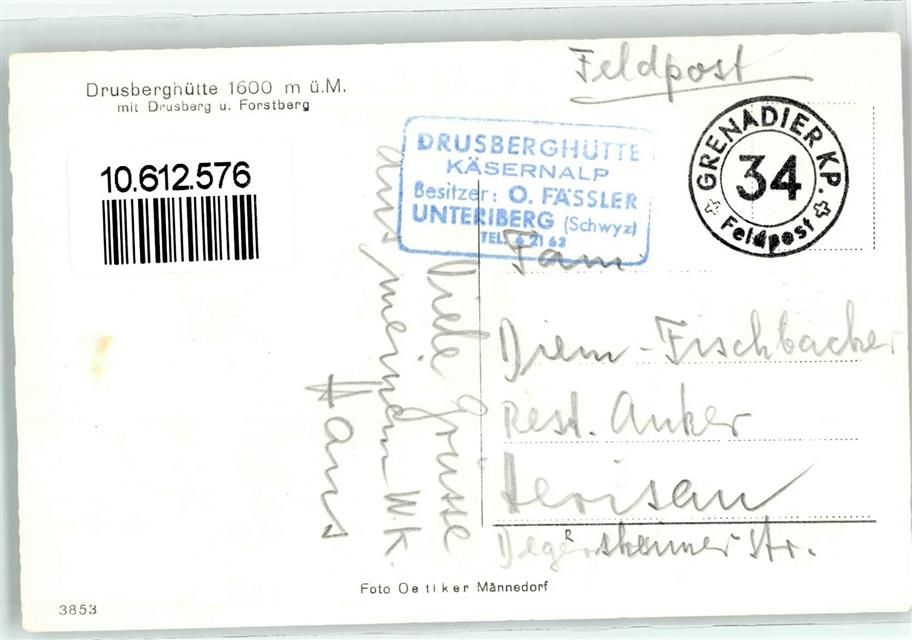 Feldpost
Drusberghütte 1600 m ü.M.
mit Drusberg u. Forstberg
10.612.576
DRUSBERGHÜTTE
KÄSERNALP
Besitzer: O. FÄSSLER
UNTERIBERG (Schwyz)
TEL. 6 21 63
GRENADIER KP.
34
Feldpost
Viele Grüsse
aus meinem W.K.
Hans
Fam.
Diem-Fischbacher
Rest. Anker
Herisau
Degersheimer Str.
Foto Oetiker Männedorf
3853